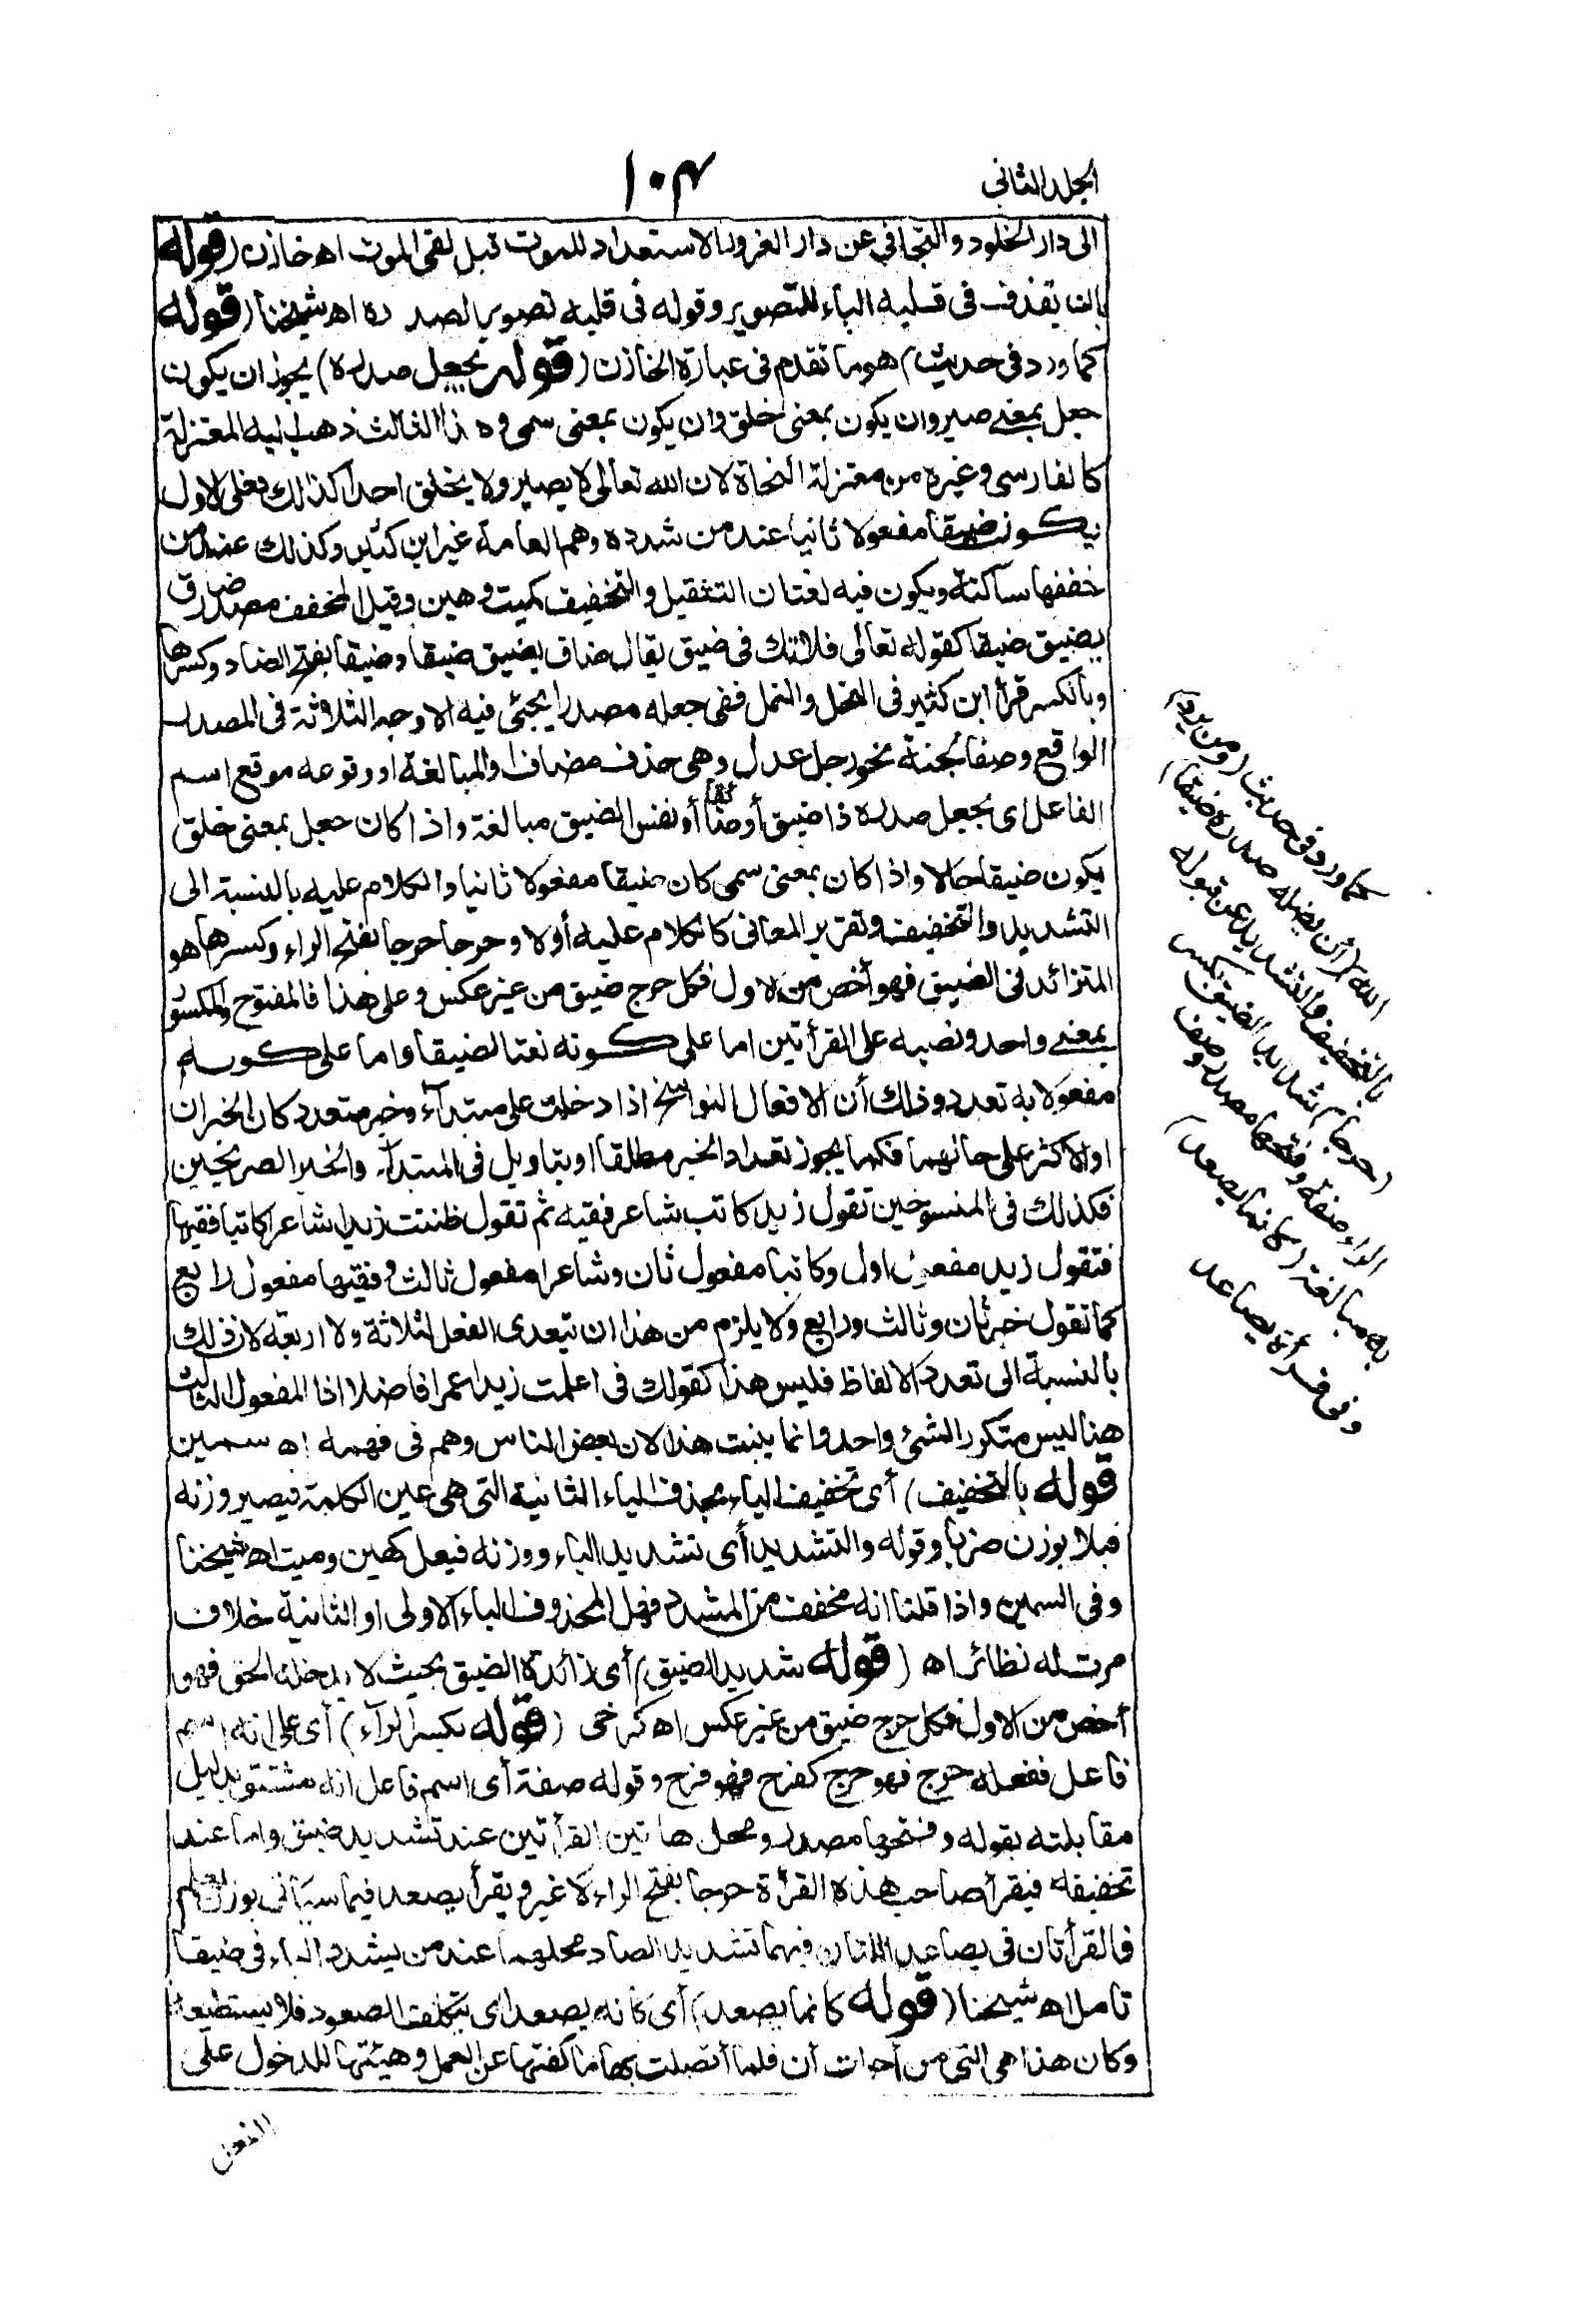 الجلد الثاني
١٠٤
الى دار الخلود والتجافي عن دار الغرور والاستعداد للموت قبل لقى الموت اه خازن (قوله
بان يقذف في قلبه الباء للتصوير وقوله في قلبه تصوير لصدره اه شيخنا (قوله
كما ورد في حديث) هو ما تقدم في عبارة الخازن (قوله يجعل صدره) يجوز ان يكون
جعل بمعنى صير وان يكون بمعنى خلق وان يكون بمعنى سمى وهذا الثالث ذهب اليه المعتزلة
كالفارسي وغيره من معتزلة النحاة لان الله تعالى لا يصير ولا يخلق احدا كذلك فعلى الاول
يكون ضيقا مفعولا ثانيا عند من شدده وهم العامة غير ابن كثير وكذلك عند من
خففها ساكنة ويكون فيه لغتان التثقيل والتخفيف كميت وهين وقيل المخفف مصدر ضاق
يضيق ضيقا كقوله تعالى فلا تك في ضيق يقال ضاق يضيق ضيقا وضيقا بفتح الضاد وكسرها
وبالكسر قرأ ابن كثير في النحل والنمل ففي جعله مصدرا يجئ فيه الاوجه الثلاثة في المصدر
الواقع وصفا لجثة نحو رجل عدل وهي حذف مضاف والمبالغة او وقوعه موقع اسم
الفاعل اى يجعل صدره ذا ضيق أو ضائقا أو نفس الضيق مبالغة واذا كان جعل بمعنى خلق
يكون ضيقا حالا واذا كان بمعنى سمى كان ضيقا مفعولا ثانيا والكلام عليه بالنسبة الى
التشديد والتخفيف وتقرير المعاني كالكلام عليه أولا وحرجا حرجا بفتح الراء وكسرها هو
المتزائد في الضيق فهو أخص من الاول فكل حرج ضيق من غير عكس وعلى هذا فالمفتوح والمكسور
بمعنى واحد ونصبه على القرأتين اما على كونه نعتا لضيقا واما على كونه
مفعولا به تعدد وذلك أن الافعال النواسخ اذا دخلت على مبتدآء وخبر متعدد كان الخبران
او الاكثر على حالهما فكما يجوز تعداد الخبر مطلقا او بتاويل في المبتدآء والخبر الصريحين
فكذلك في المنسوخين تقول زيد كاتب شاعر فقيه ثم تقول ظننت زيدا شاعرا كاتبا فقيها
فتقول زيد مفعول اول وكاتبا مفعول ثان وشاعرا مفعول ثالث وفقيها مفعول رابع
كما تقول خبر ثان وثالث ورابع ولا يلزم من هذا ان يتعدى الفعل لثلاثة ولا اربعة لان ذلك
بالنسبة الى تعدد الالفاظ فليس هذا كقولك في اعلمت زيدا عمرا فاضلا اذا المفعول الثالث
هنا ليس متكررا لشئ واحد وانما بينت هذا لان بعض الناس وهم في فهمه اه سمين
قوله بالتخفيف) أى تخفيف الياء بحذف الياء الثانية التى هى عين الكلمة فيصير وزنه
فيلا بوزن ضربا وقوله والتشديد أى تشديد الياء ووزنه فيعل كهين وميت اه شيخنا
وفى السمين واذا قلنا انه مخفف من المشدد فهل المحذوف الياء الاولى او الثانية خلاف
مرت له نظائر اه (قوله شديد الضيق) أى زائدة الضيق بحيث لا يدخله الحق فهو
أخص من الاول فكل حرج ضيق من غير عكس اه كرخى (قوله بكسر الرآء) أى على انه اسم
فاعل ففعله حرج فهو حرج كفرح فهو فرح وقوله صفة أى اسم فاعل انه مشتق بدليل
مقابلته بقوله وفتحها مصدر ومحل هاتين القرأتين عند تشديد ضيق واما عند
تخفيفه فيقرأ صاحب هذه القرأة حرجا بفتح الراء لا غير ويقرأ يصعد فيما سيأتى بوزن يعلم
فالقرأتان في يصاعد اللتان فيهما تشديد الصاد محلهما عند من يشدد الياء في ضيقا
تامل اه شيخنا (قوله كانما يصعد) أى كانه يصعد اى يتكلف الصعود فلا يستطيعه
وكان هذا هى التى من أخوات أن فلما أتصلت بها ما كفتها عن العمل وهيئتها للدخول على
كما ورد في حديث (ومن يرد)
الله (أن يضله يجعل صدره ضيقا)
بالتخفيف والتشديد عن قبوله
(حرجا) شديد الضيق بكسر
الراء صفة وفتحها مصدر وصف
به مبالغة (كانما يصعد)
وفى قرأة يصاعد